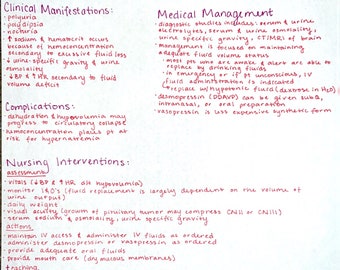 Clinical Manifestations:
- polyuria
- polydipsia
- nocturia
- ↑ sodium & hematocrit occurs
because of hemoconcentration
secondary to excessive fluid loss
- ↓ urine specific gravity & urine
osmolality
- ↓ BP & ↑ HR secondary to fluid
volume deficit
Complications:
- dehydration & hypovolemia may
progress to circulatory collapse
- hemoconcentration places pt at
risk for hypernatremia
Medical Management
- diagnostic studies include: serum & urine
electrolytes, serum & urine osmolality,
urine specific gravity, CT/MRI of brain
- management is focused on maintaining
adequate fluid volume status
• most pts who are awake & alert are able to
replace by drinking fluids
• in emergency or if pt unconscious, IV
fluid administration is indicated
replace w/ hypotonic fluid (dextrose in H₂O)
- desmopressin (DDAVP) can be given subQ,
intranasal, or oral preparation
- vasopressin is less expensive synthetic form
Nursing Interventions:
assessment
- vitals (↓ BP & ↑ HR d/t hypovolemia)
- monitor I&O's (fluid replacement is largely dependent on the volume of
urine output)
- daily weight
- visual acuity (growth of pituitary tumor may compress CNII or CNIII)
- serum sodium & osmolality, urine specific gravity
actions
- maintain IV access & administer IV fluids as ordered
- administer desmopressin or vasopressin as ordered
- provide adequate oral fluids
- provide mouth care (dry mucous membranes)
teaching